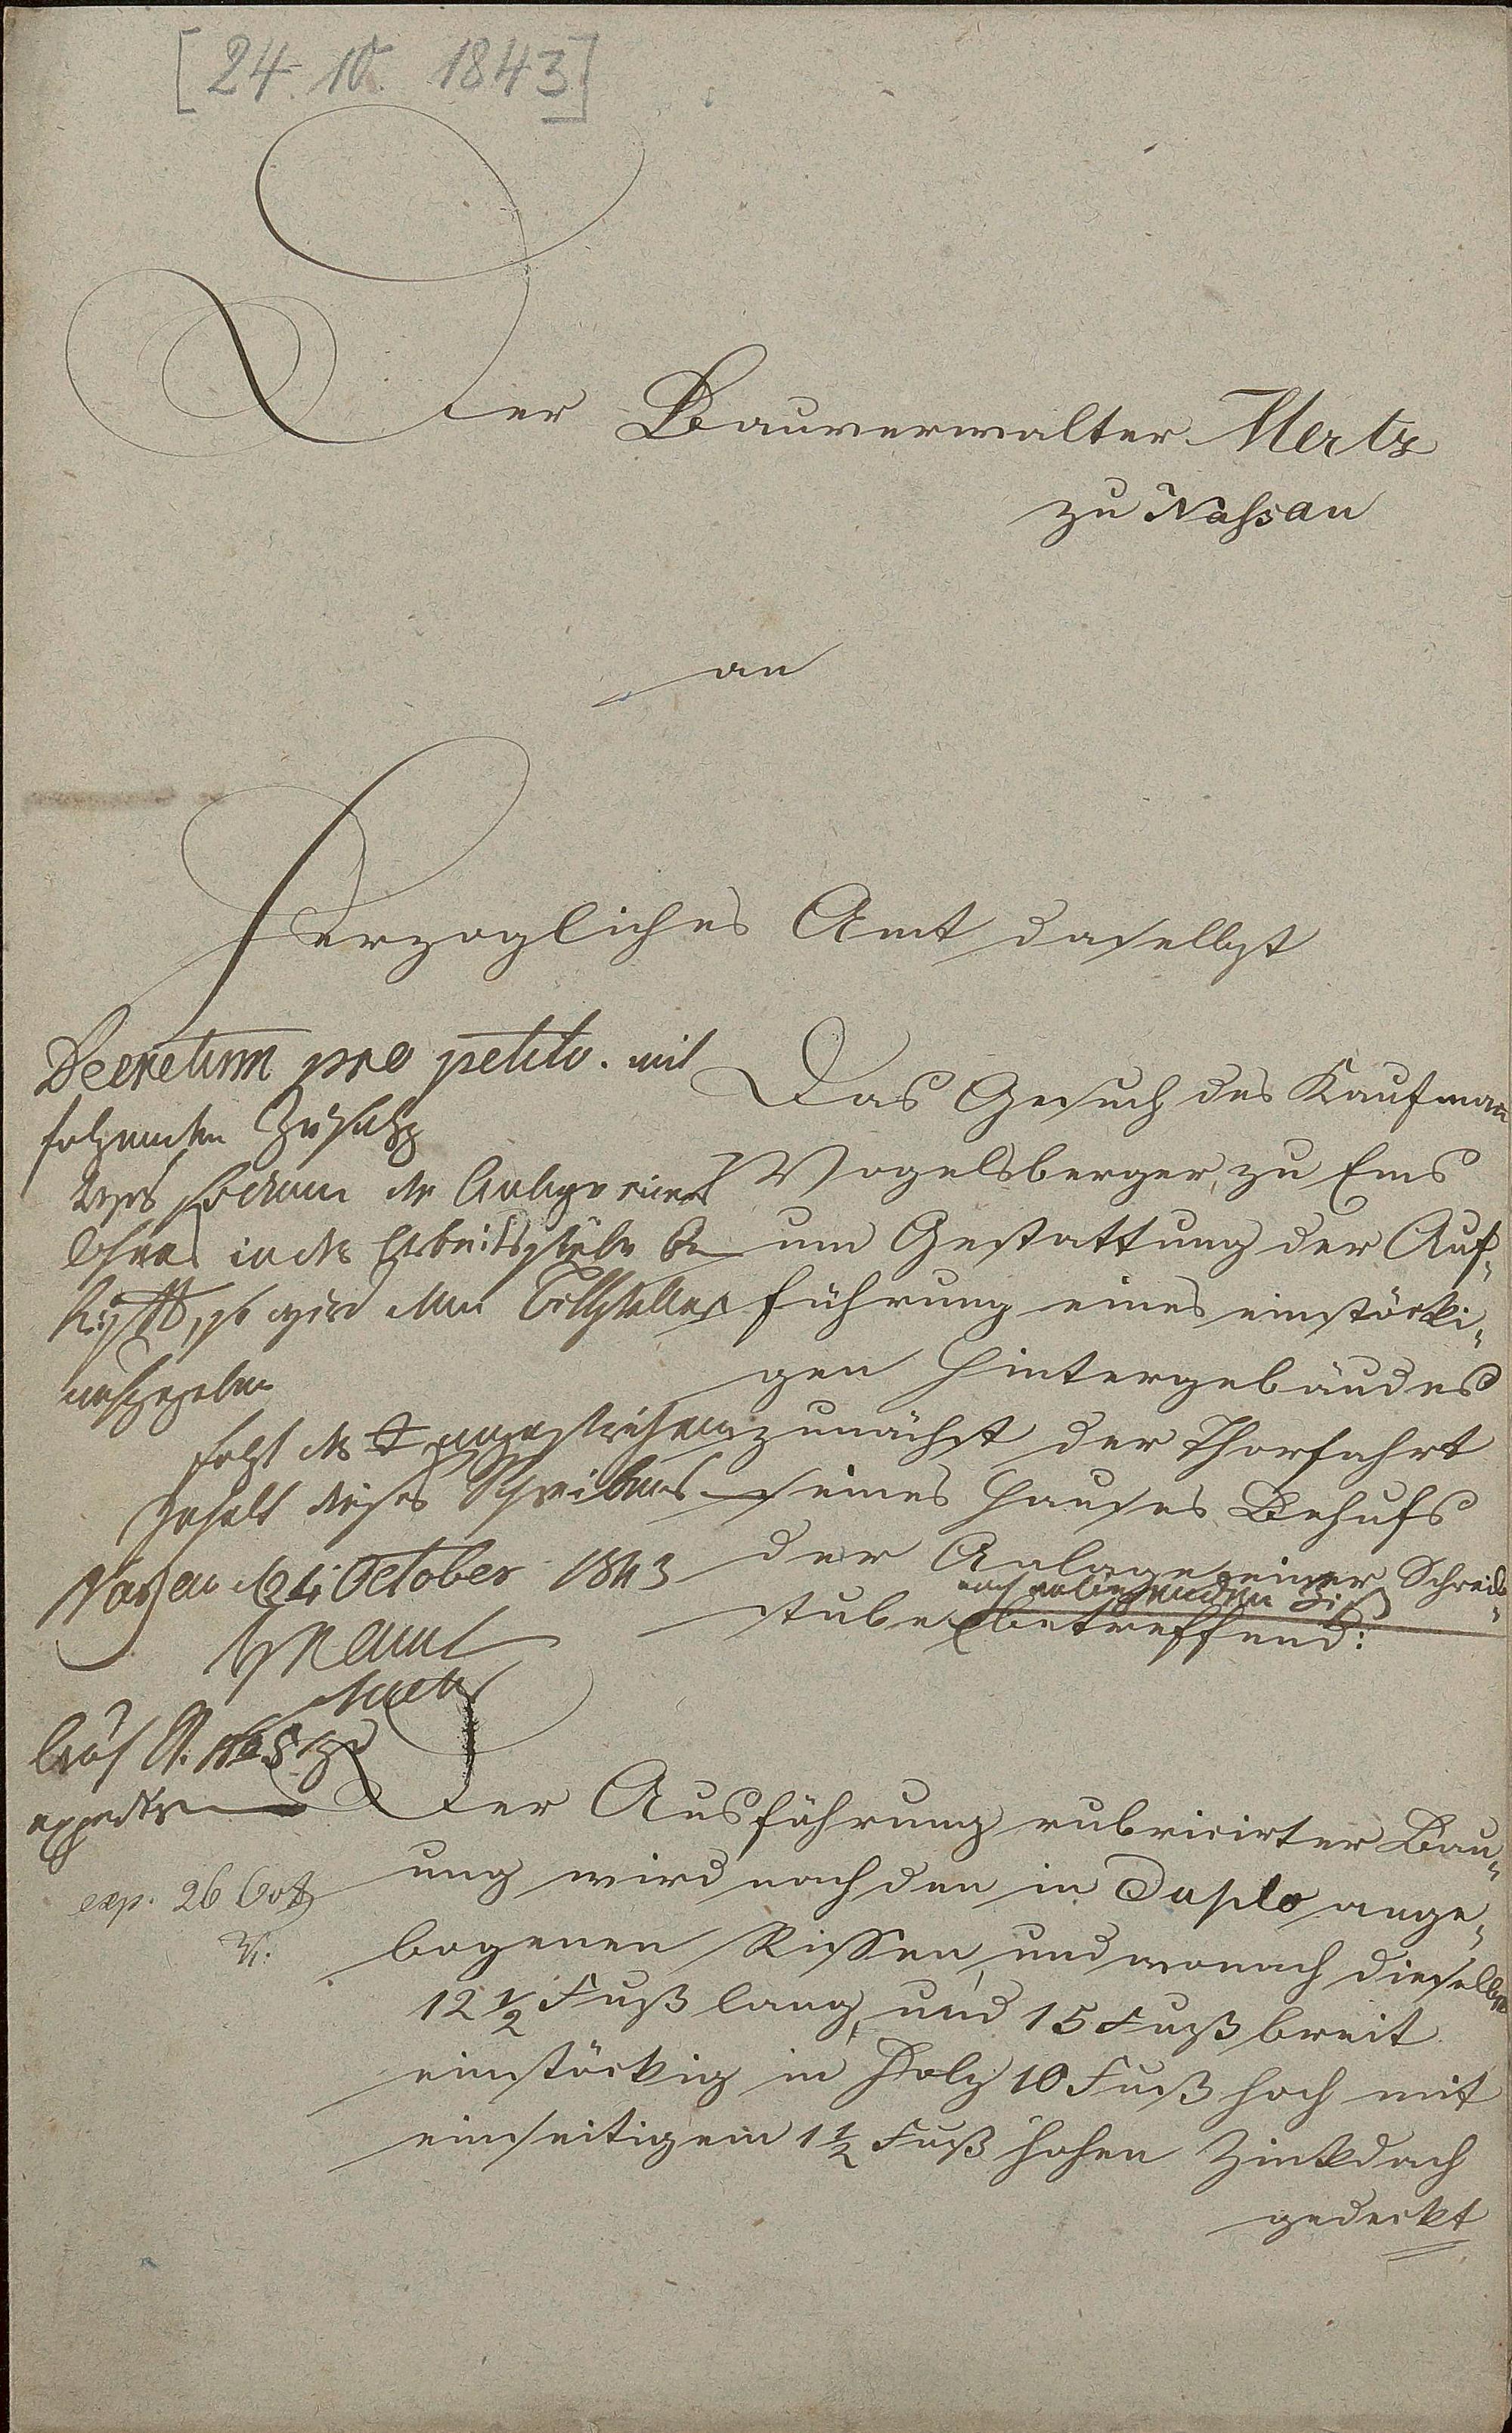 [24. 10. 1843]
Der Bauverwalter Mertz
zu Nassau
an
Herzogliches Amt daselbst
Decretum pro petito. mit
folgendem Zusatz
der Anlage eines
Ofens in der Arbeitsstube be
trifft, so wird dem Bittsteller
aufgegeben
folgt der angestrichene
Inhalt dieses Schreibens
Nassau d 24 October 1843
HNAmt
expedtr
exp. 26 Oct
Das Gesuch des Kaufmann
Vogelsberger, zu Ems
um Gestattung der Auf-
führung eines einstöcki-
gen Hintergebäudes
zunächst der Thorfahrt
seines Hauses Behufs
der Anlage einer Schreib-
nach anliegendem Riß
stube betreffend:
Der Ausführung rubricirter Bau-
ung wird nach den in Duplo ange-
bogenen Rissen, und wonach dieselbe
12 1/2 Fuß lang, und 15 Fuß breit
einstöckig in Holz 10 Fuß hoch mit
einseitigem 1 1/2 Fuß hohen Zinkdach
gedeckt